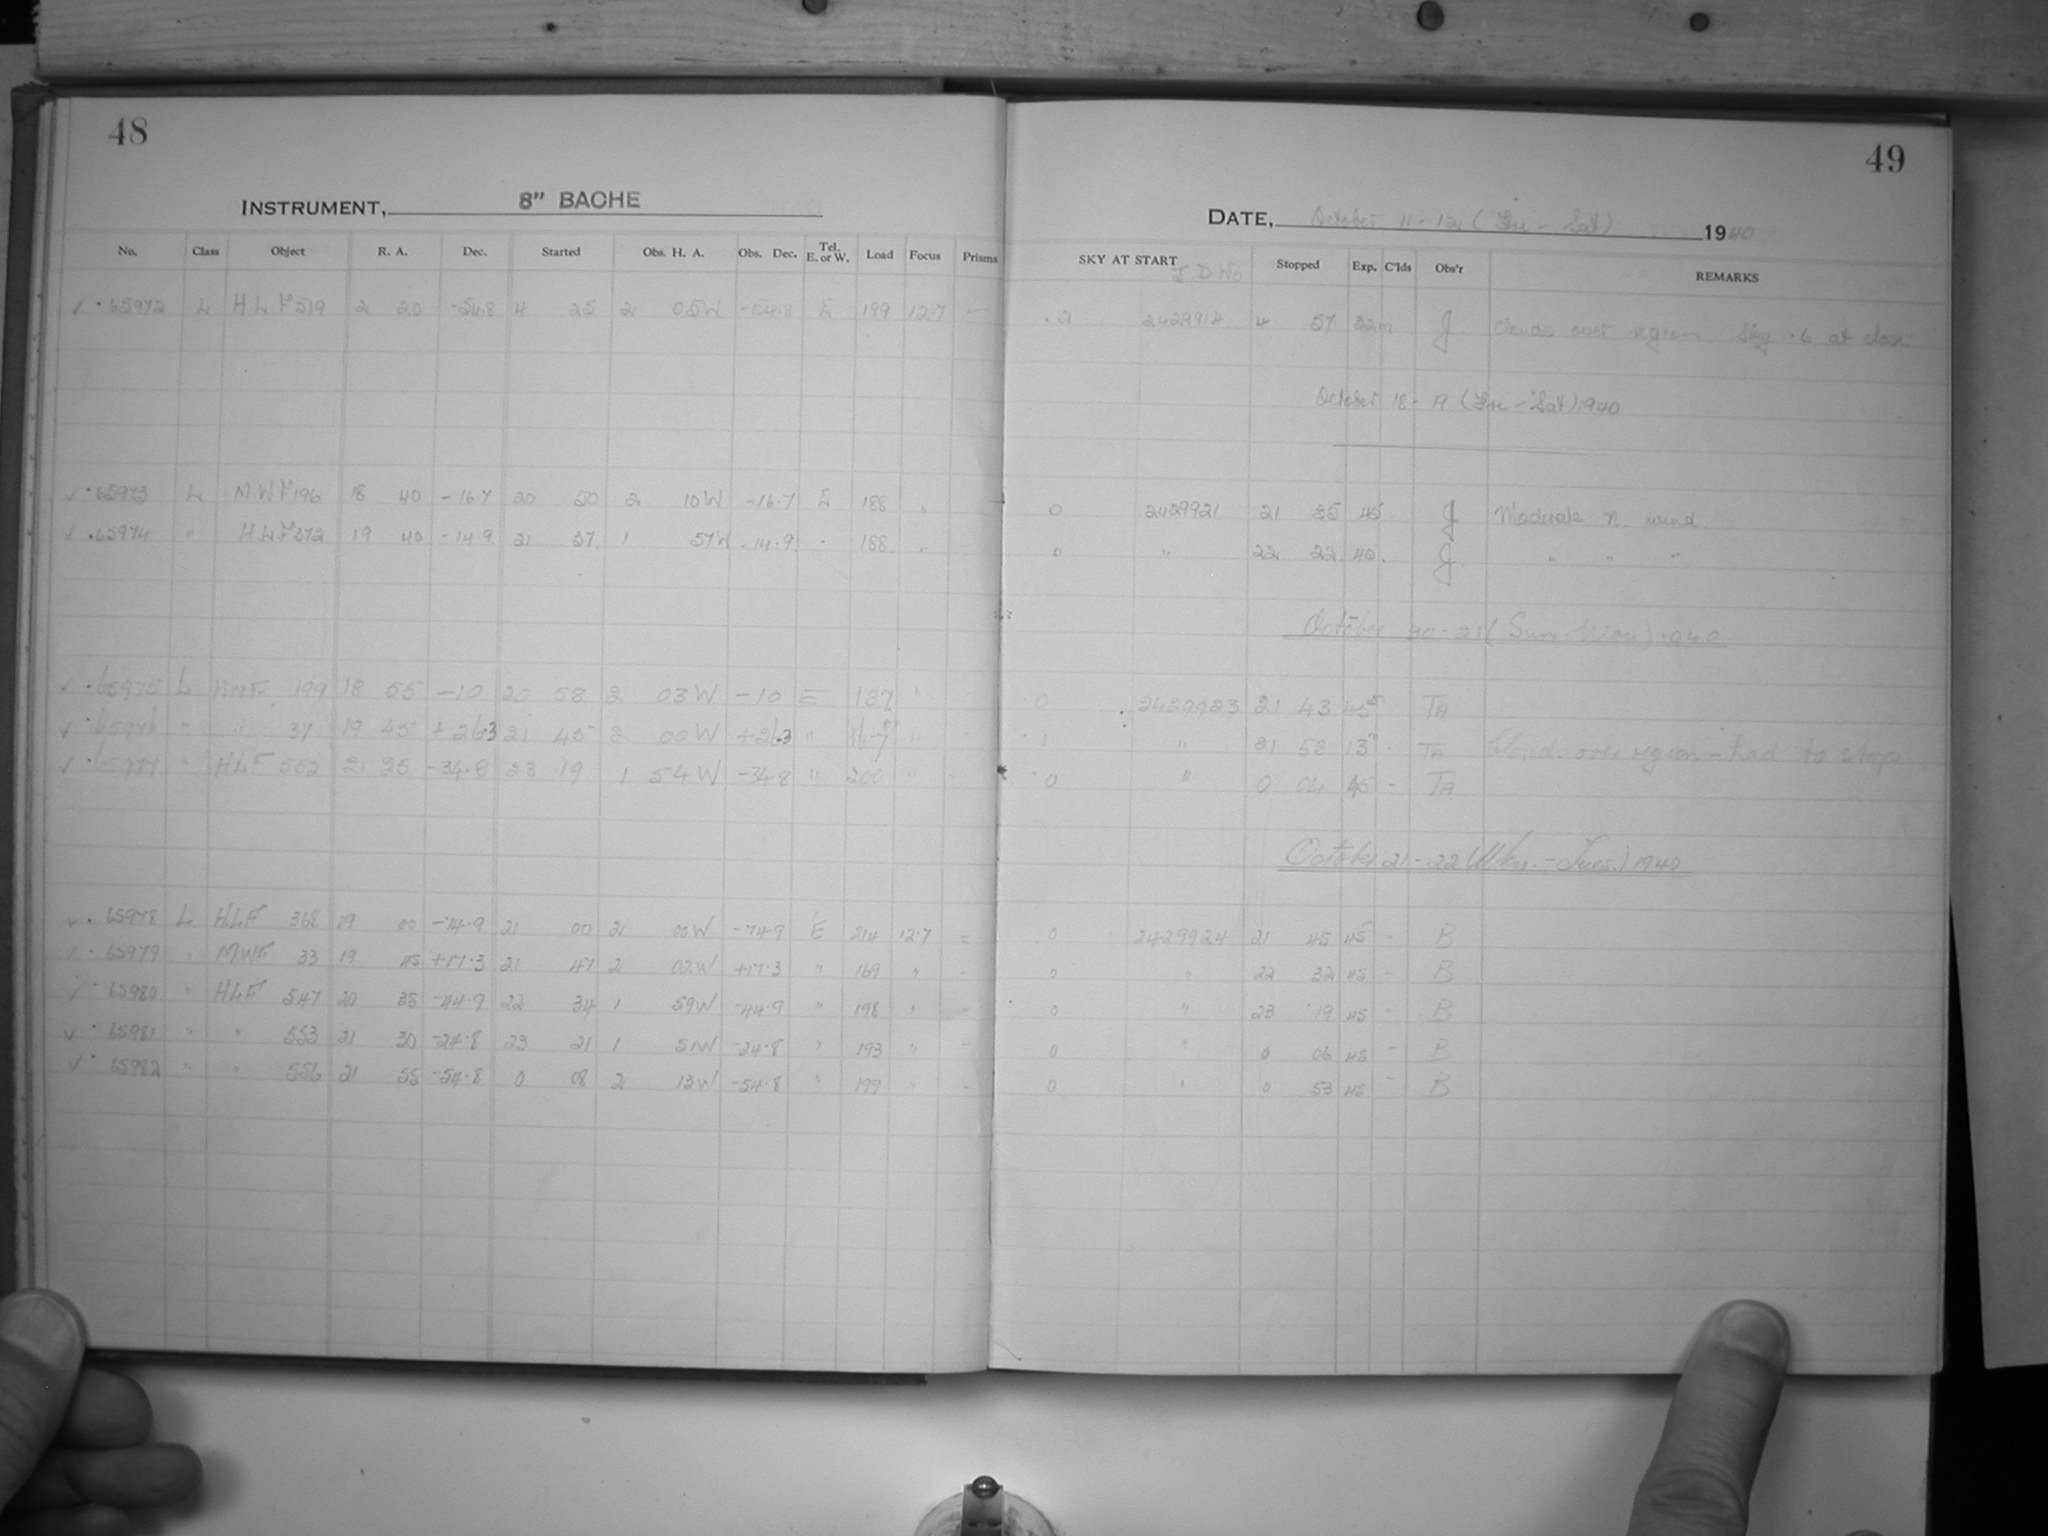 48
INSTRUMENT, 8" BACHE
No. Class Object R. A. Dec. Started Obs. H. A. Obs. Dec. Tel. E. or W. Load Focus Prisms
✓ · 65972 L HLF 519 2 20 -54.8 4 25 2 05W -54.8 E 199 12.7 -
✓ · 65973 L MWF 196 18 40 -16.7 20 50 2 10W -16.7 E 188 "
✓ · 65974 " HLF 372 19 40 -14.9 21 37 1 57W -14.9 " 188 " -
✓ · 65975 L MWF 199 18 55 -10 20 58 2 03W -10 E 187 " -
✓ · 65976 " " 37 19 45 +26.3 21 45 2 00W +26.3 " 167 " -
✓ · 65977 " HLF 502 21 25 -34.8 23 19 1 54W -34.8 " 200 " -
✓ · 65978 L HLF 368 19 00 -74.9 21 00 2 00W -74.9 E 214 12.7 -
✓ · 65979 " MWF 33 19 45 +17.3 21 47 2 02W +17.3 " 169 " -
✓ · 65980 " HLF 547 20 35 -44.9 22 34 1 59W -44.9 " 198 " -
✓ · 65981 " " 553 21 30 -24.8 23 21 1 51W -24.8 " 193 " -
✓ · 65982 " " 556 21 55 -54.8 0 08 2 13W -54.8 " 199 " -
49
DATE, October 11-12 (Fri - Sat) 1940
SKY AT START J.D No Stopped Exp. C'lds Obs'r REMARKS
.2 2429914 4 57 32m J Clouds over region Sky .6 at close
October 18-19 (Fri - Sat) 1940
0 2429921 21 35 45 J Moderate N. wind
0 " 22 22 45 J " " "
October 20-21 (Sun-Mon) 1940
0 2429923 21 43 45 TA
1 " 21 58 13m - TA Clouds over region - had to stop
0 " 0 04 45 - TA
October 21-22 (Mon. - Tues.) 1940
0 2429924 21 45 45 - B
0 " 22 32 45 - B
0 " 23 19 45 - B
0 " 0 06 45 - B
0 " 0 53 45 - B